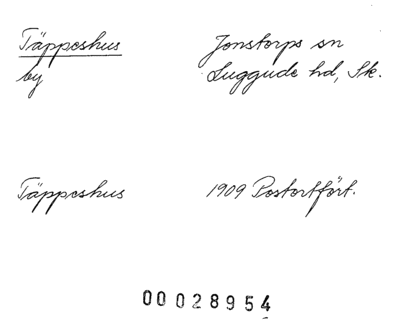 Täppeshus Jonstorps sn
by Luggude hd, Sk.
Täppeshus 1909 Postortfört.
00028954